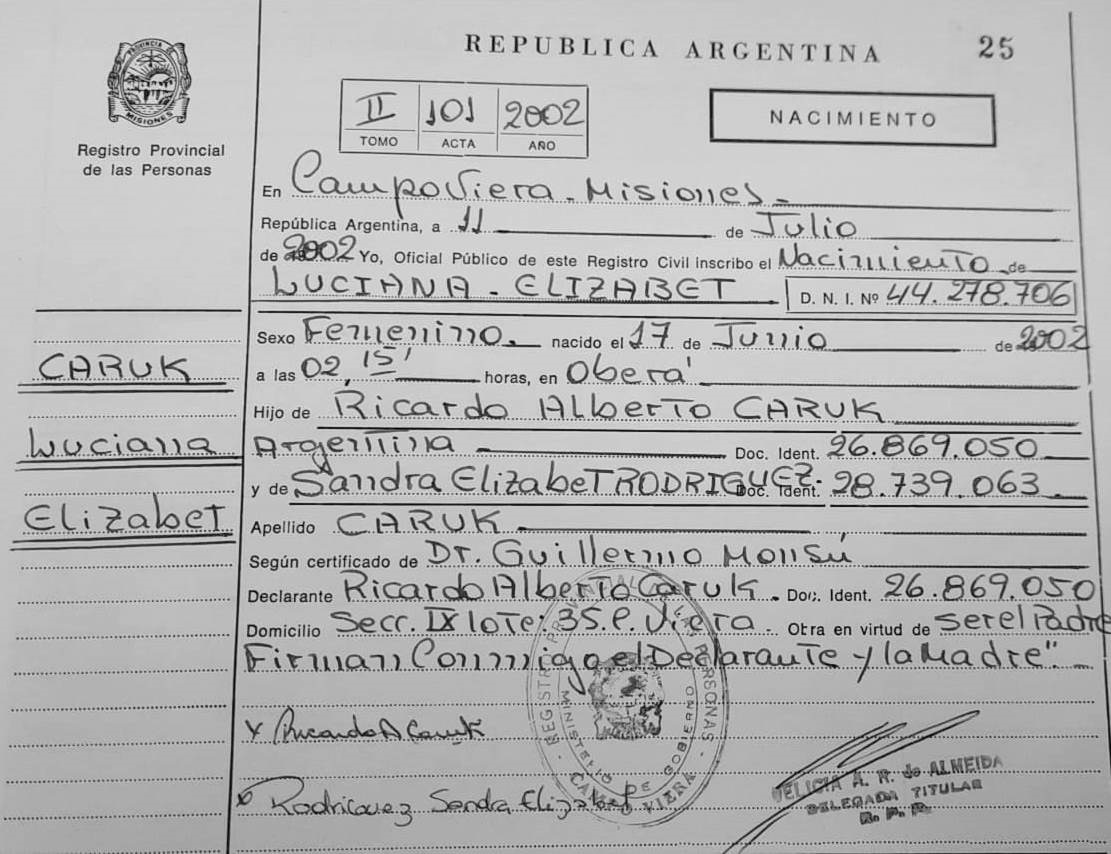 REPUBLICA ARGENTINA 25
PROVINCIA DE MISIONES
Registro Provincial
de las Personas
II 101 2002
TOMO ACTA AÑO
NACIMIENTO
En Campo Viera - Misiones -
República Argentina, a 11 de Julio
de 2002 Yo, Oficial Público de este Registro Civil inscribo el Nacimiento de
LUCIANA - ELIZABET D. N. I. Nº 44.278.706
Sexo Femenino. nacido el 17 de Junio de 2002
a las 02,15' horas, en Oberá
Hijo de Ricardo Alberto CARUK
Argentina Doc. Ident. 26.869.050
y de Sandra Elizabet RODRIGUEZ. Doc. Ident. 28.739.063
Apellido CARUK
Según certificado de Dr. Guillermo Monsú
Declarante Ricardo Alberto Caruk. Doc. Ident. 26.869.050
Domicilio Secc. IX lote: 35. C. Viera. Otra en virtud de ser el Padre
Firman Conmigo el Declarante y la Madre"
CARUK
Luciana
Elizabet
x Ricardo A Caruk
x Rodriguez Sandra Elizabet
REGISTRO PROVINCIAL DE LAS PERSONAS
MINISTERIO DE GOBIERNO
CAMPO VIERA
FELICIA A. R. de ALMEIDA
DELEGADA TITULAR
R. P. P.